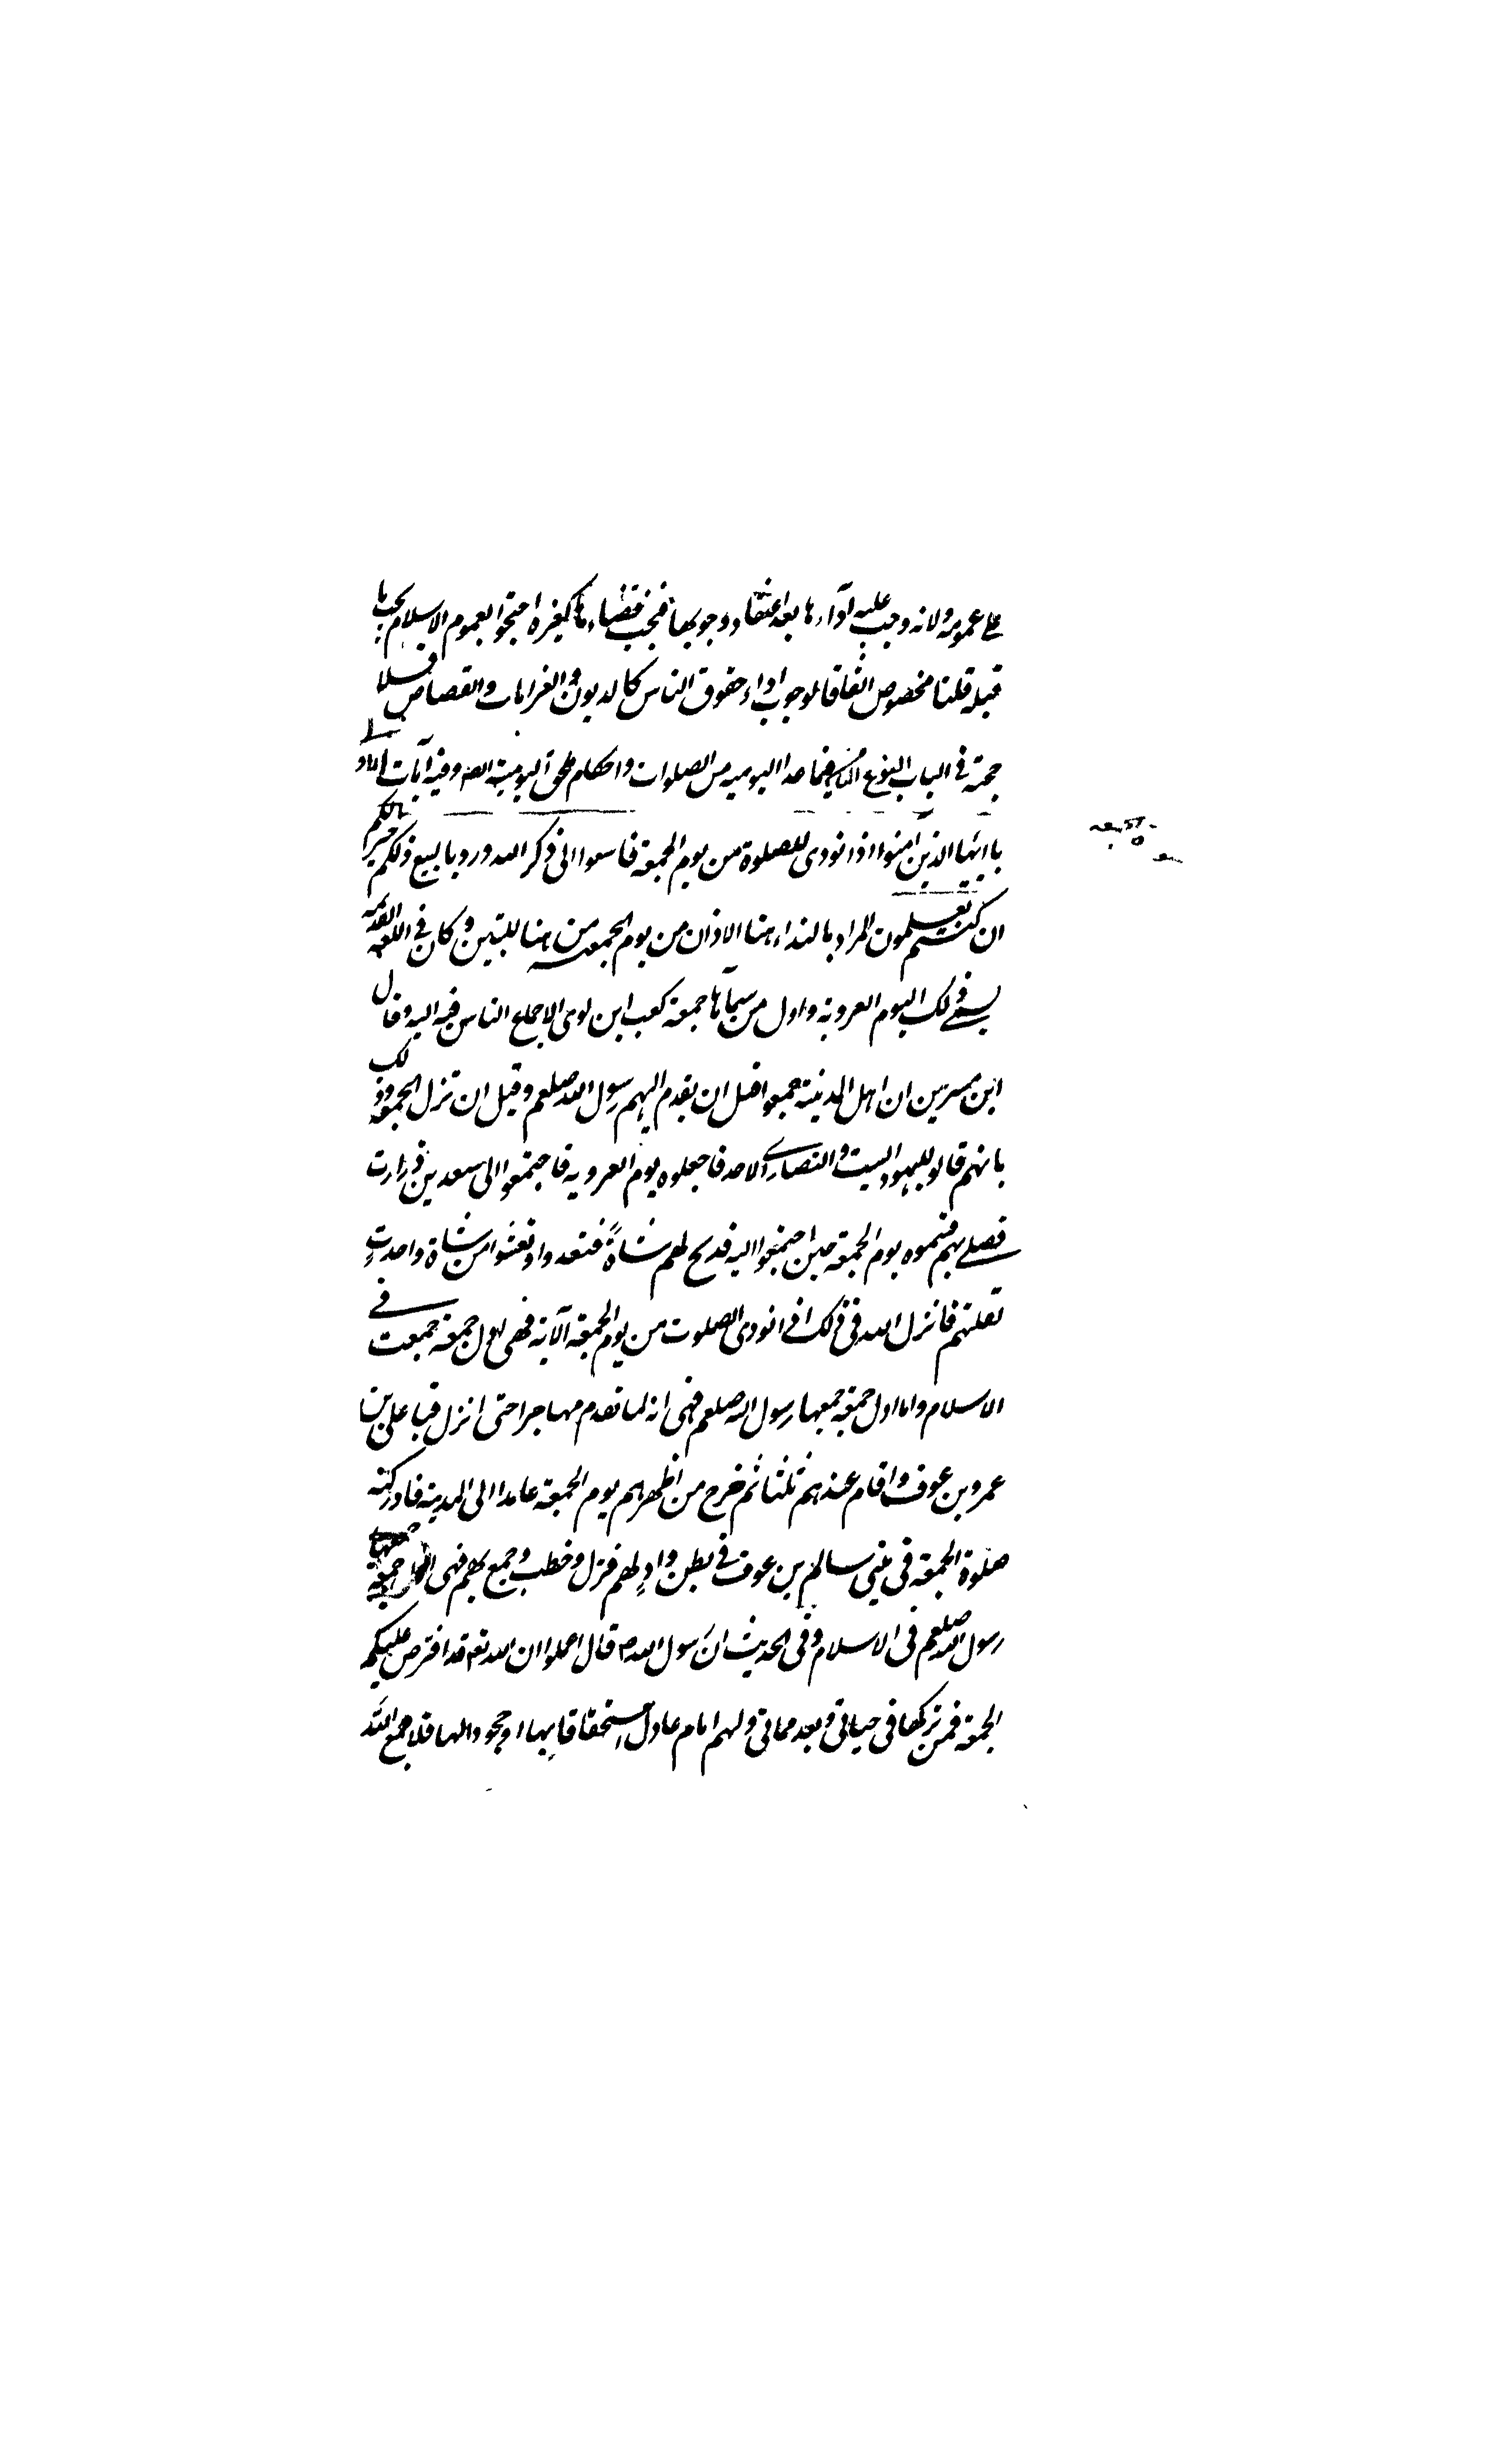 على عمومه ولانه وجب عليه اداء ها بعد اعتقاد وجوبها فيجب قضاء ها كغيره احتجوا بعموم الاسلام يجب ما
قبله قلنا مخصوص اتفاقا لوجوب اداء حقوق الناس كالديون والغرامات والقصاص فلا
حجة فى الباب النوع فيما عدا اليوميه من الصلوات واحكام اليومية ايضا وفيه آيات الاولى
يا ايها الذين آمنوا اذا نودى للصلوة من يوم الجمعة فاسعوا الى ذكر الله وذروا البيع ذلكم خير لكم
ان كنتم تعلمون المراد بالنداء هنا الاذان من يوم الجمعه من هنا للتبيين وكان فى اللغه القديمه
يسمى ذلك اليوم العروبة واول من سماها جمعة كعب ابن لوى لاجماع الناس فيه اليه وقال
ابن سيرين ان اهل المدينة جمعوا قبل ان يقدم اليهم رسول الله صلعم وقبل ان تزل الجمعة وذلك
بانهم قالوا لليهود السبت والنصارى الاحد فاجعلوه يوم العروبه فاجتمعوا الى سعد بن زرارت
فصلى بهم فسموه يوم الجمعة حين اجتمعوا اليه فذبح لهم شاةً فتغدوا وتعشوا من شاة واحدتٍ
لقلتهم فانزل الله فى ذلك اذا نودى الصلوت من يوم الجمعة الآية فهى اول جمعة جمعت فى
الاسلام واما اول جمعة جمعها رسول الله صلعم فهى انه لما تقدم مهاجرا حتى انزل قبا على بن
عمرو بن عوف واقام عندهم ثلثا ثم خرج من اظهرهم يوم الجمعة عامدا الى المدينة فادركته
صلوة الجمعة فى بنى سالم بن عوف فى بطن وادٍ لهم فنزل وخطب وجمع بهم فهى اول جمعة جمعها
رسول الله صلعم فى الاسلام وفى الحديث ان رسول الله ص قال اعملوا ان الله تع قد افترض عليكم
الجمعة فمن تركها فى حياتى وبعد مماتى ولهم امام عادل استخفافا بها او جحودا لها فلا جمع الله